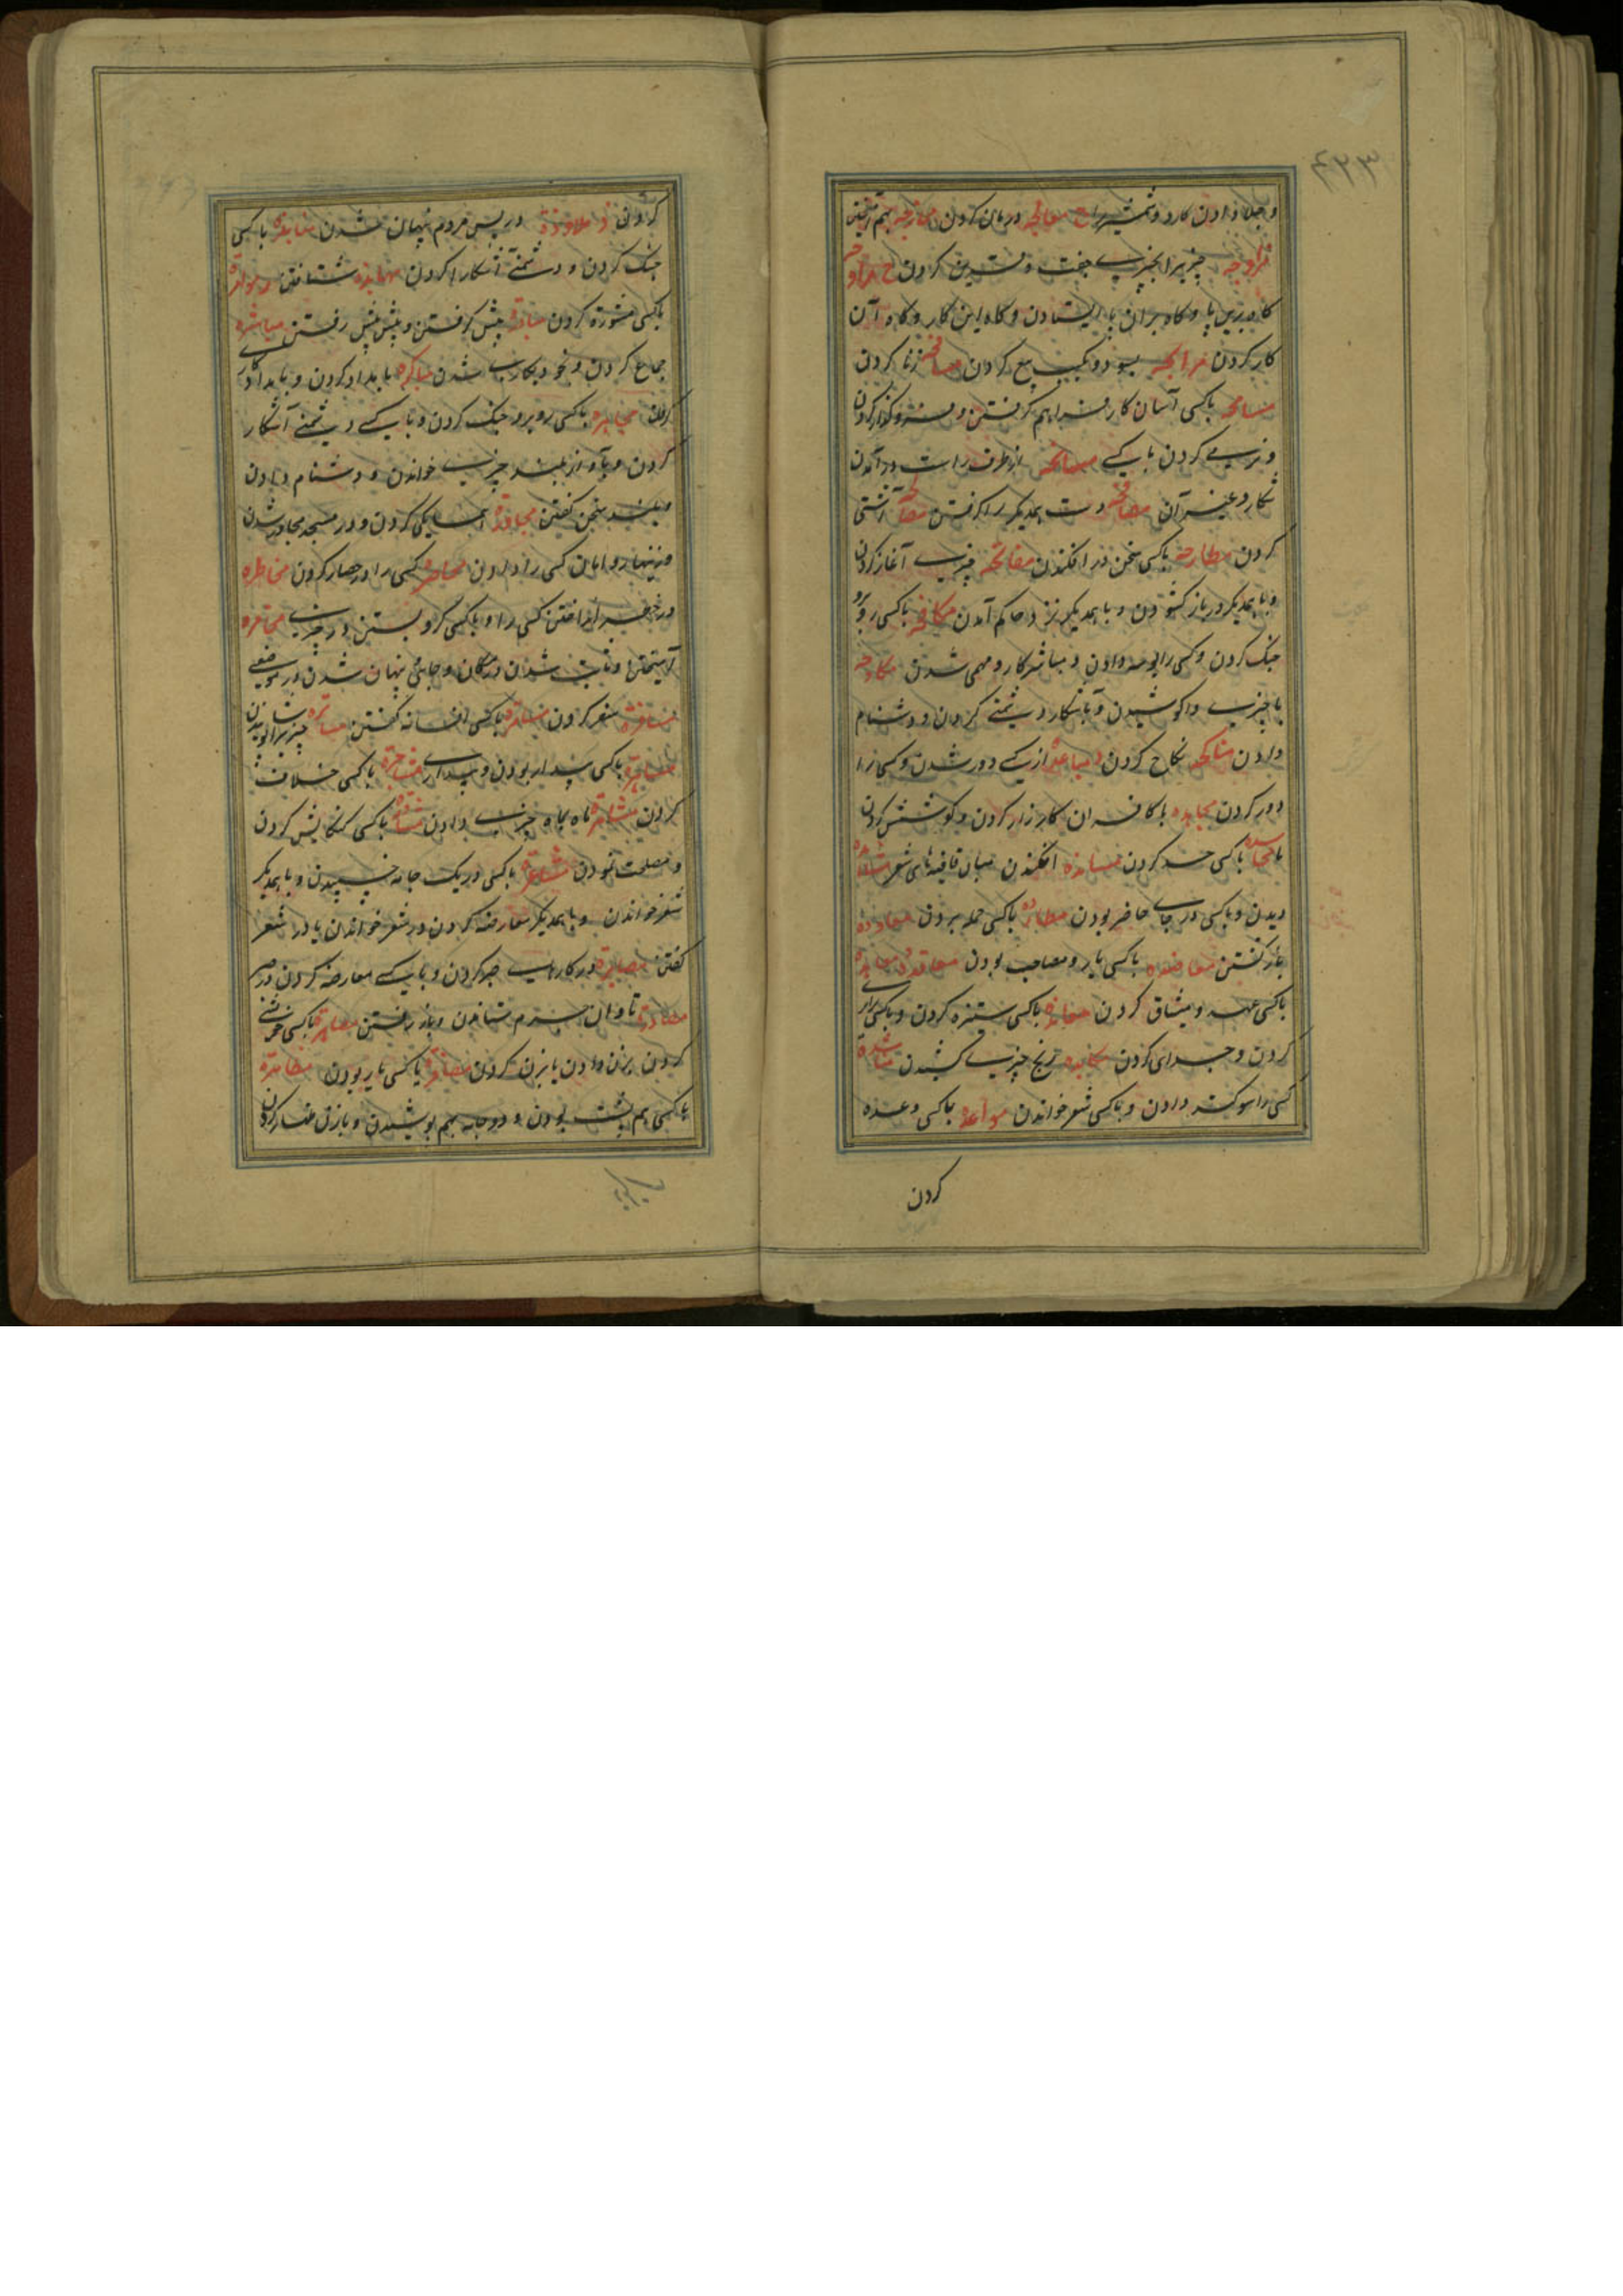 ۴۳۳
و جلا دادن کارد و شمشیر را ج معالجه درمان کردن ممازجه بهم آمیختن
مزاوجه چیزیرا بچیزی جفت و قرین کردن ح مراوحه
گاه برین پا و گاه بران پا ایستادن و گاه این کار و گاه آن
کار کردن مرابحه بسود و بکسب بیع کردن مسافحه زنا کردن
مسامحه باکسی آسان کار فراهم گرفتن و فرو گذار کردن
و نرمی کردن با یکی مسانحه از طرف راست در آمدن
شکار و غیر آن مصافحه دست یکدیگر را گرفتن مصالحه آشتی
کردن مطارحه باکسی سخن در افکندن مفاتحه چیزی آغاز کردن
و با یکدیگر در باز گشودن و با یکدیگر نزد حاکم آمدن مکافحه باکسی رو برو
جنگ کردن و کسی را بوسه دادن و مباشر کار و مهمی شدن مکاوحه
با چیزی واکوشیدن و آشکار دشمنی کردن و دشنام
دادن مناکحه نکاح کردن د مباعده از یکی دور شدن و کسی را
دور کردن مجاهده با کافران کارزار کردن و کوشش کردن
محاسده باکسی حسد کردن مسانده افکندن میان قافیه‌های شعر مشاهده
دیدن و باکسی در جای حاضر بودن مطارده باکسی حمله بردن معاوده
باز گشتن معاضده باکسی یار و مصاحب بودن معاقده معاهده
باکسی عهد و میثاق کردن معانده باکسی ستیزه کردن و باکسی برابری
کردن و جدای کردن مکابده رنج چیزی کشیدن مناشده
کسی را سوگند دادن و باکسی شعر خواندن مواعده باکسی وعده
کردن
کردن ذ ملاوذه در پس مردم پنهان شدن منابذه باکسی
جنگ کردن و دشمنی آشکارا کردن مهابذه شتافتن ر موامره
باکسی مشورة کردن مبادره پیش گرفتن و پیش پیش رفتن مباشره
جماع کردن و بخود بکاری شدن مباکره بامداد کردن و بامداد کار
کردن مجاهره باکسی رو برو جنگ کردن و با یکی دشمنی آشکار
کردن و بآواز بلند چیزی خواندن و دشنام دادن
و بلند سخن گفتن مجاوره همسایگی کردن و در مسجد مجاور شدن
و زینهار و امان کسی را دادن محاصره کسی را در حصار کردن مخاطره
در خطر انداختن کسی را و باکسی گرو بستن در چیزی مخامره
آمیختن و ثابت شدن در مکان و جای پنهان شدن در موضعی
مسافره سفر کردن مسامره باکسی افسانه گفتن مساتره چیزیرا پوشانیدن
مساهره باکسی بیدار بودن و بیداری مشاجره باکسی خلاف
کردن مشاهره ماه بماه چیزی دادن مشاوره باکسی کنکاش کردن
و مصلحت نمودن مشاعره باکسی در یک جامه خسپیدن و با یکدیگر
شعر خواندن و با یکدیگر معارضه کردن در شعر خواندن یا در شعر
گفتن مصابره در کاری صبر کردن و با یکی معارضه کردن در صبر
مصادره تاوان جرم ستاندن و باز رفتن مصاهره باکسی خویشی
کردن بزن دادن یا بزن کردن مضافره باکسی یار بودن مظاهره
باکسی هم پشت بودن و دو جامه بهم پوشیدن و با زن ظهار کردن